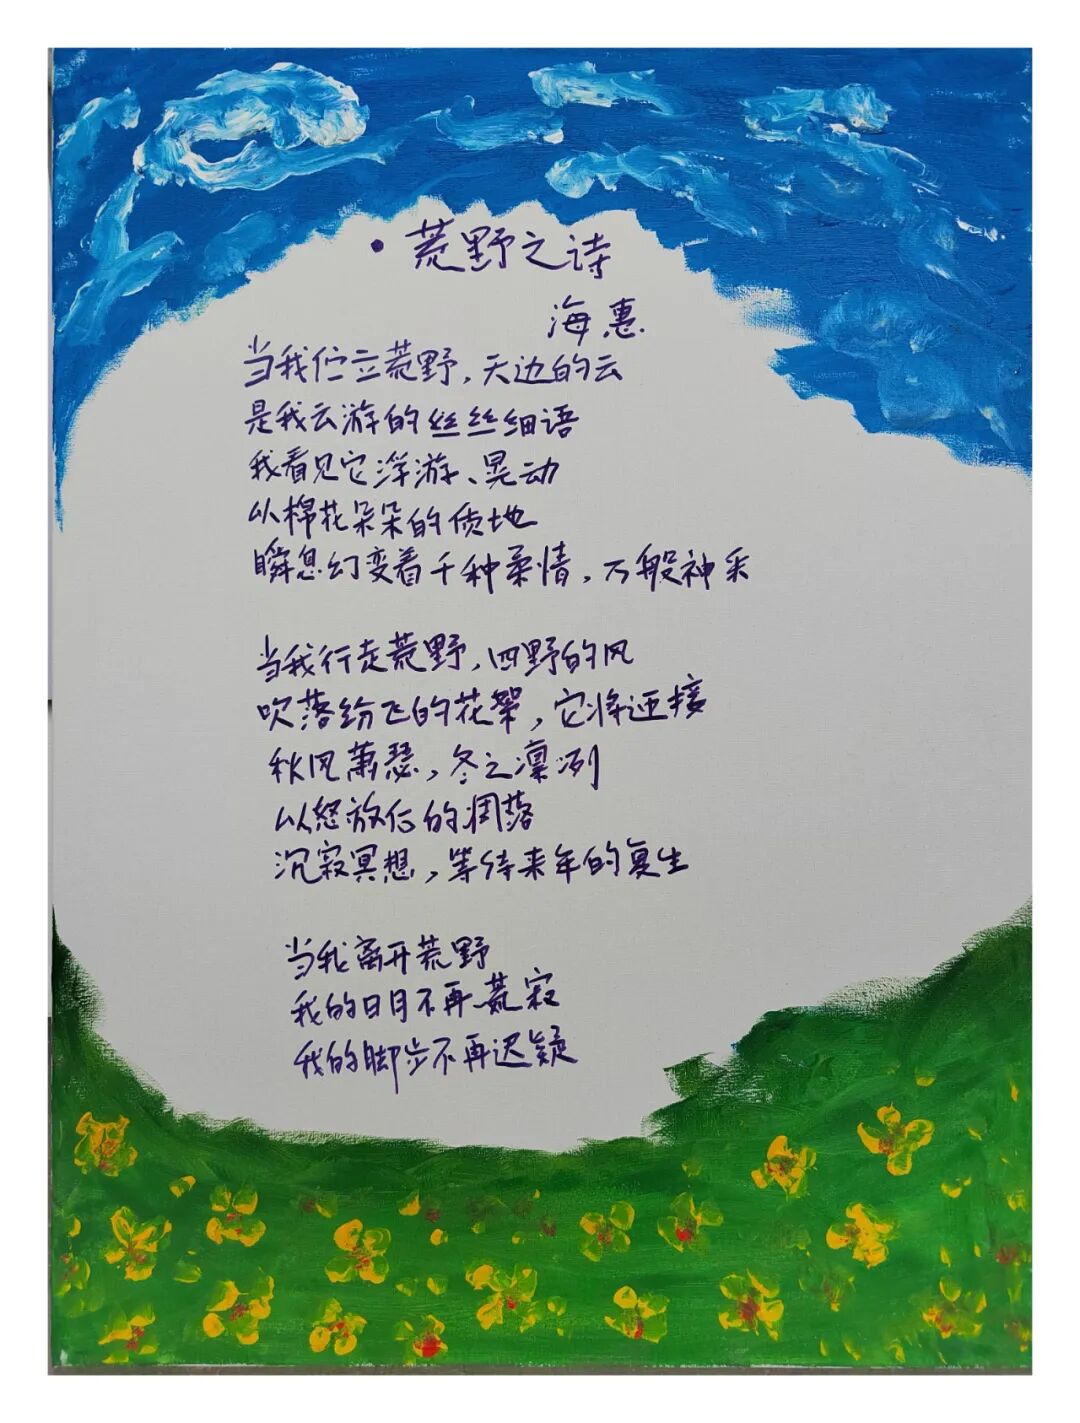 •荒野之诗
海惠
当我伫立荒野,天边的云
是我云游的丝丝细语
我看见它浮游、晃动
从棉花朵朵的质地
瞬息幻变着千种柔情,万般神采
当我行走荒野,四野的风
吹落纷飞的花絮,它将迎接
秋风萧瑟,冬之凛冽
以怒放后的凋落
沉寂冥想,等待来年的复生
当我离开荒野
我的日月不再荒寂
我的脚步不再迟疑